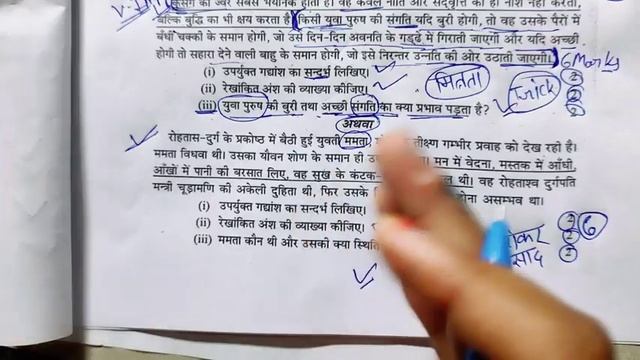 कुसंग का ज्वर सबसे भयानक होता है। वह केवल नीति और सद्वृत्ति का ही नाश नहीं करता,
बल्कि बुद्धि का भी क्षय करता है। किसी युवा पुरुष की संगति यदि बुरी होगी, तो वह उसके पैरों में
बंधी चक्की के समान होगी, जो उसे दिन-दिन अवनति के गड्ढे में गिराती जाएगी और यदि अच्छी
होगी तो सहारा देने वाली बाहु के समान होगी, जो इसे निरन्तर उन्नति की ओर उठाती जाएगी।
6 Marks
(i) उपर्युक्त गद्यांश का सन्दर्भ लिखिए। 2
(ii) रेखांकित अंश की व्याख्या कीजिए। मित्रता Trick 2
(iii) युवा पुरुष की बुरी तथा अच्छी संगति का क्या प्रभाव पड़ता है? 2
अथवा
रोहतास-दुर्ग के प्रकोष्ठ में बैठी हुई युवती ममता, तीक्ष्ण गम्भीर प्रवाह को देख रही है।
ममता विधवा थी। उसका यौवन शोण के समान ही मन में वेदना, मस्तक में आँधी,
आँखों में पानी की बरसात लिए, वह सुख के कंटक- थी। वह रोहताश्व दुर्गपति
मन्त्री चूड़ामणि की अकेली दुहिता थी, फिर उसके होना असम्भव था।
(i) उपर्युक्त गद्यांश का सन्दर्भ लिखिए। 2 6
(ii) रेखांकित अंश की व्याख्या कीजिए। 2
(iii) ममता कौन थी और उसकी क्या स्थिति साद 2